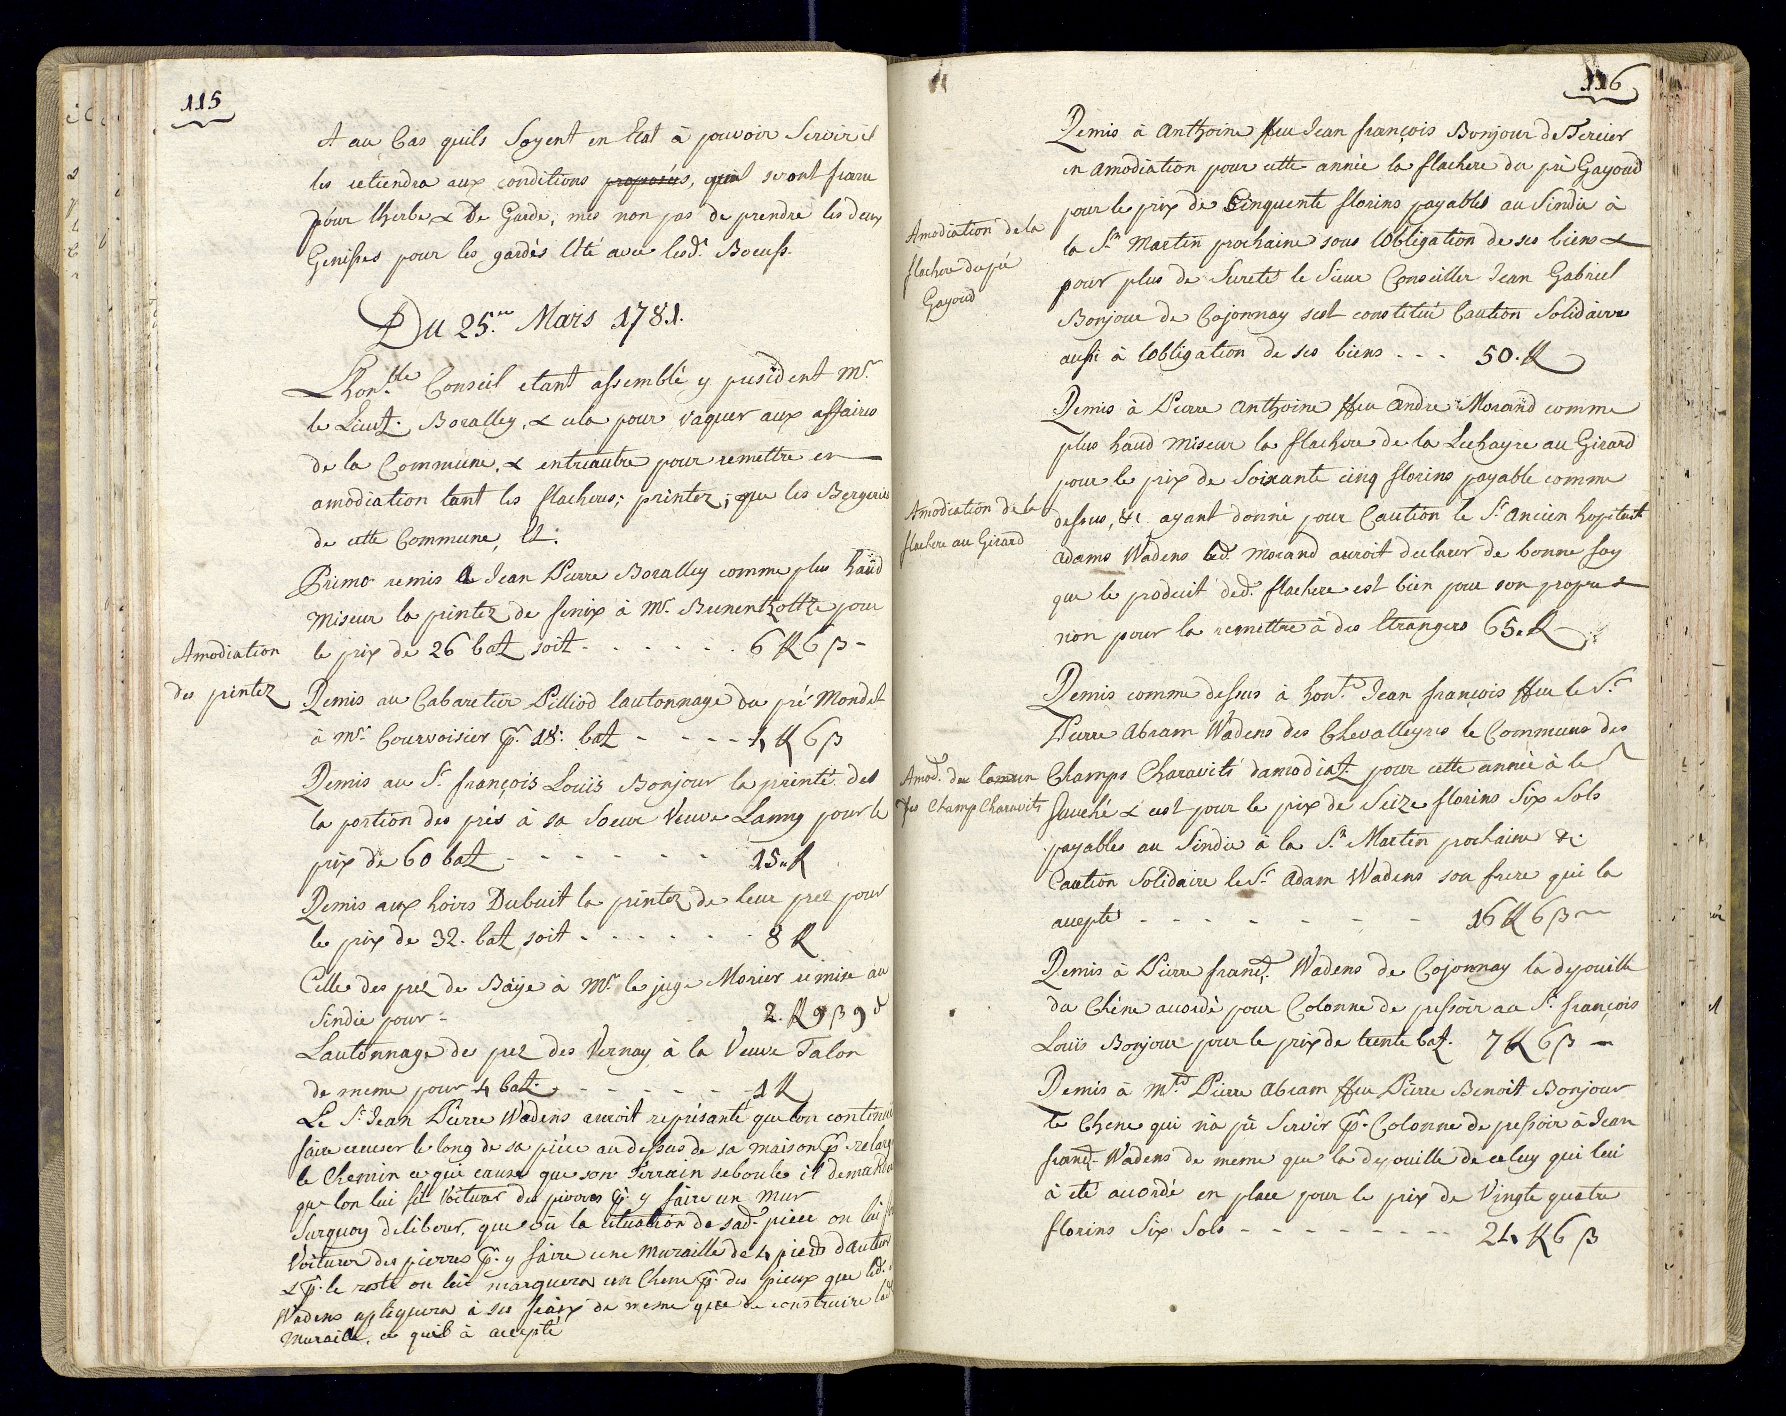 115
et au Cas quils Soyent en Etat à pouvoir Servir il
les retiendra aux conditions proposés, quil seront franc
pour lherbe & De Garde, mes non pas de prendre les deux
Genisses pour les gardés lété avec lesd.s Boeufs.
Du 25.me Mars 1781.
Lhon.ble Conseil etant assemblé y president Mr.
le Lieut. Boralley, & cela pour vaquer aux affaires
de la Commune, & entreautre pour remettre en
amodiation tant les flacheres; printez; que les Bergeries
de cette Commune, Et:
Primo remis à Jean Pierre Boralley comme plus haud
Miseur la printez de fenix à Mr. Burenkottz pour
le prix de 26 batz soit - - - - - - 6 fl 6 ß -
Amodiation
des printez
Remis au Cabaretier Pilliod lautonnage du pré Mondet
à Mr. Courvoisier p.r 18. batz - - - - 4 fl 6 ß
Remis au Sr. françois Louis Bonjour la printé des
la portion des prés à sa Soeur Veuve Lanny pour le
prix de 60 batz - - - - - - 15 fl
Remis aux hoirs Dubuit la printez de leur prez pour
le prix de 32. batz soit - - - - - - 8 fl
Celle des prez de Bäye à Mr. le juge Monier remise au
Sindic pour - 2. fl 9 ß 9 d
Lautonnage des prez des Vernay à la Veuve Talon
de meme pour 4 batz. - - - - - - 1 fl
Le Sr. Jean Pierre Wadens auroit représanté que lon continue
faire creuser le long de sa pièce au dessus de sa maison p.r relarg
le Chemin ce qui cause que son Terrain seboule il demanda
que lon lui fit Voiturer des pierres p.r y faire un mur
Surquoy deliberer, que vû la situation de sad. pièce on lui
Voiturer des pierres p.r y faire une Muraille de 4 pieds dauteur
& p.r le reste on lui marquera un Chene p.r des pieux que led.
Wadens apliquera à ses fraix de meme que de construire lad
Muraille, ce quil à accepté
116
Remis à Anthoine ffeu Jean françois Bonjour de Tercier
en amodiation pour cette année la flachere du pré Gayoud
pour le prix de Cinquente florins payables au Sindic à
la St. Martin prochaine sous lobligation de ses biens &
pour plus de Sureté le Sieur Conseiller Jean Gabriel
Bonjour de Cojonnay sest constitué Caution Solidaire
aussi à lobligation de ses biens - - - 50. fl
Amodiation de la
flachere du pré
Gayoud
Remis à Pierre Anthoine ffeu André Morand comme
plus haud Miseur la flachere de la Luchayre au Girard
pour le prix de Soixante cinq florins payable comme
dessus, &c ayant donné pour Caution le Sr. Ancien hopitast
Adams Wadens led. Morand auroit declarer de bonne foy
que le produit ded. flachere est bien pour son propre &
non pour la remettre à des Etrangers 65. fl
Amodiation de la
flachere au Girard
Remis comme dessus à hont. Jean françois ffeu le Sr.
Pierre Abram Wadens des Chevalleyres le Commune des
Champs Charavits damodiat. pour cette année à le
fauché & cest pour le prix de Seize florins Six Sols
payables au Sindic à la St. Martin prochaine &c
Caution Solidaire le Sr. Adam Wadens son frere qui la
accepté - - - - - - - 16 fl 6 ß
Amod. du Comun
des Champ Charavits
Remis à Pierre franç. Wadens de Cojonnay la depouille
du Chêne accordé pour Colonne de pressoir au Sr. françois
Louis Bonjour pour le prix de trente batz. 7 fl 6 ß -
Remis à M.d Pierre Abram ffeu Pierre Benoit Bonjour
le Chene qui na pû Servir p.r Colonne de pressoir à Jean
franç. Wadens de meme que la depouille de celuy qui lui
à eté accordé en place pour le prix de Vingte quatre
florins Six Sols - - - - - - - - - 24 fl 6 ß